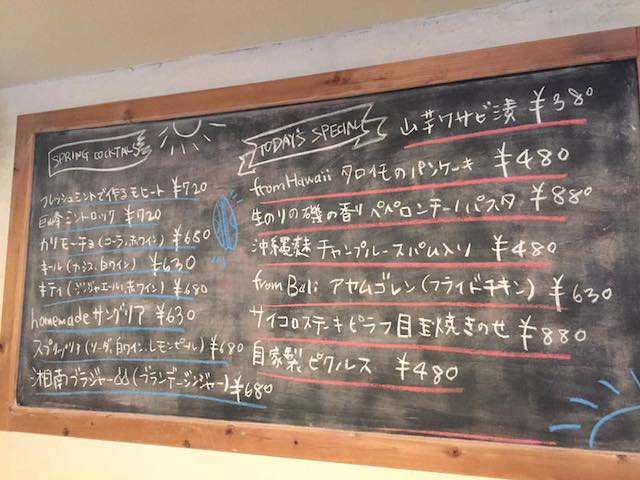 SPRING COCKTAILS
フレッシュミントで作るモヒート ¥720
巨峰ミントロック ¥720
カリモーチョ(コーラ、赤ワイン) ¥680
キール(カシス、白ワイン) ¥630
キティ(ジンジャエール、赤ワイン) ¥680
homemadeサングリア ¥630
スプリッツァ(ソーダ、白ワイン、レモンピール) ¥680
湘南ブラジャー(ブランデージンジャー) ¥680
TODAY'S SPECIAL
山芋ワサビ漬 ¥380
from Hawaii タロイモのパンケーキ ¥480
生のりの磯の香りペペロンチーノパスタ ¥880
沖縄麩チャンプルースパム入り ¥480
from Bali アヤムゴレン(フライドチキン) ¥630
サイコロステーキピラフ目玉焼きのせ ¥880
自家製ピクルス ¥480